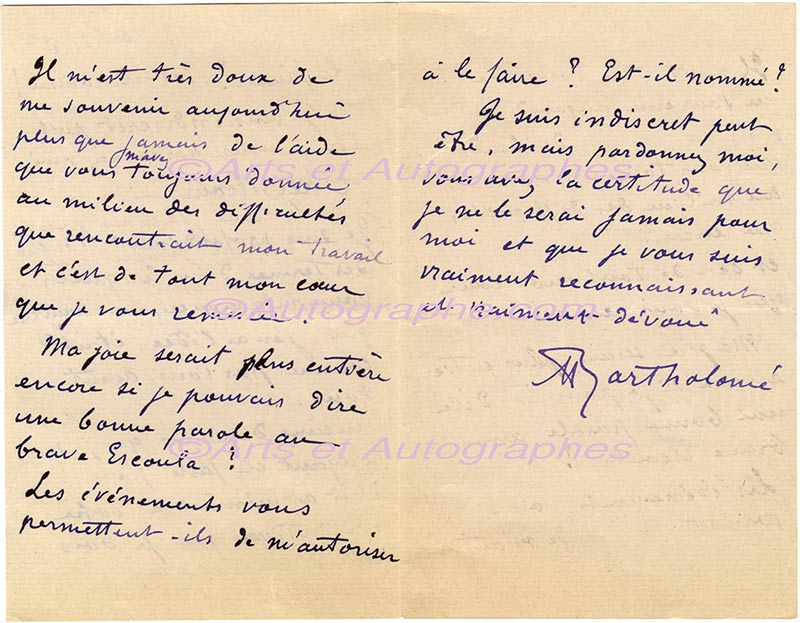 Il m'est très doux de
me souvenir aujourd'hui
plus que jamais de l'aide
m'avez
que vous toujours donnée
au milieu des difficultés
que rencontrait mon travail
et c'est de tout mon cœur
que je vous remercie.
Ma joie serait plus entière
encore si je pouvais dire
une bonne parole au
brave Escoula ?
Les événements vous
permettent-ils de m'autoriser
à le faire ? Est-il nommé ?
Je suis indiscret peut
être, mais pardonnez moi,
vous avez la certitude que
je ne le serai jamais pour
moi et que je vous suis
vraiment reconnaissant
et vraiment dévoué
ABartholomé
©Arts et Autographes
©Autographe.com
©Arts et Autographes